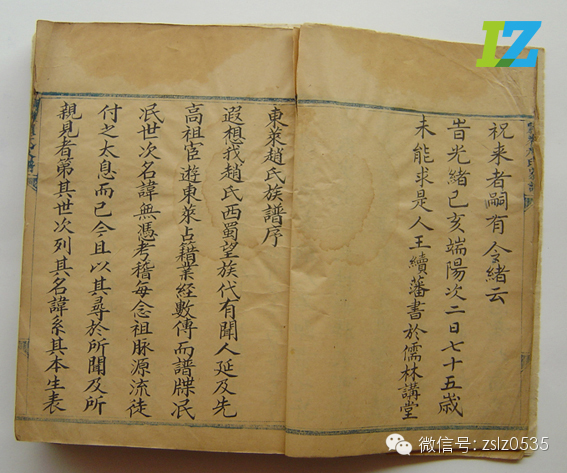 祝来者嗣有令緒云
旹光緒己亥端陽次二日七十五歲
未能求是人王續藩書於儒林講堂
東萊趙氏族譜序
遐想我趙氏西蜀望族代有聞人延及先
高祖宦遊東萊占稽業經數傳而譜牒冺
冺世次名諱無憑考稽每念祖脉源流徒
付之太息而已今且以其尋於所聞及所
親見者第其世次列其名諱系其本生表
LZ
微信号: zslz0535